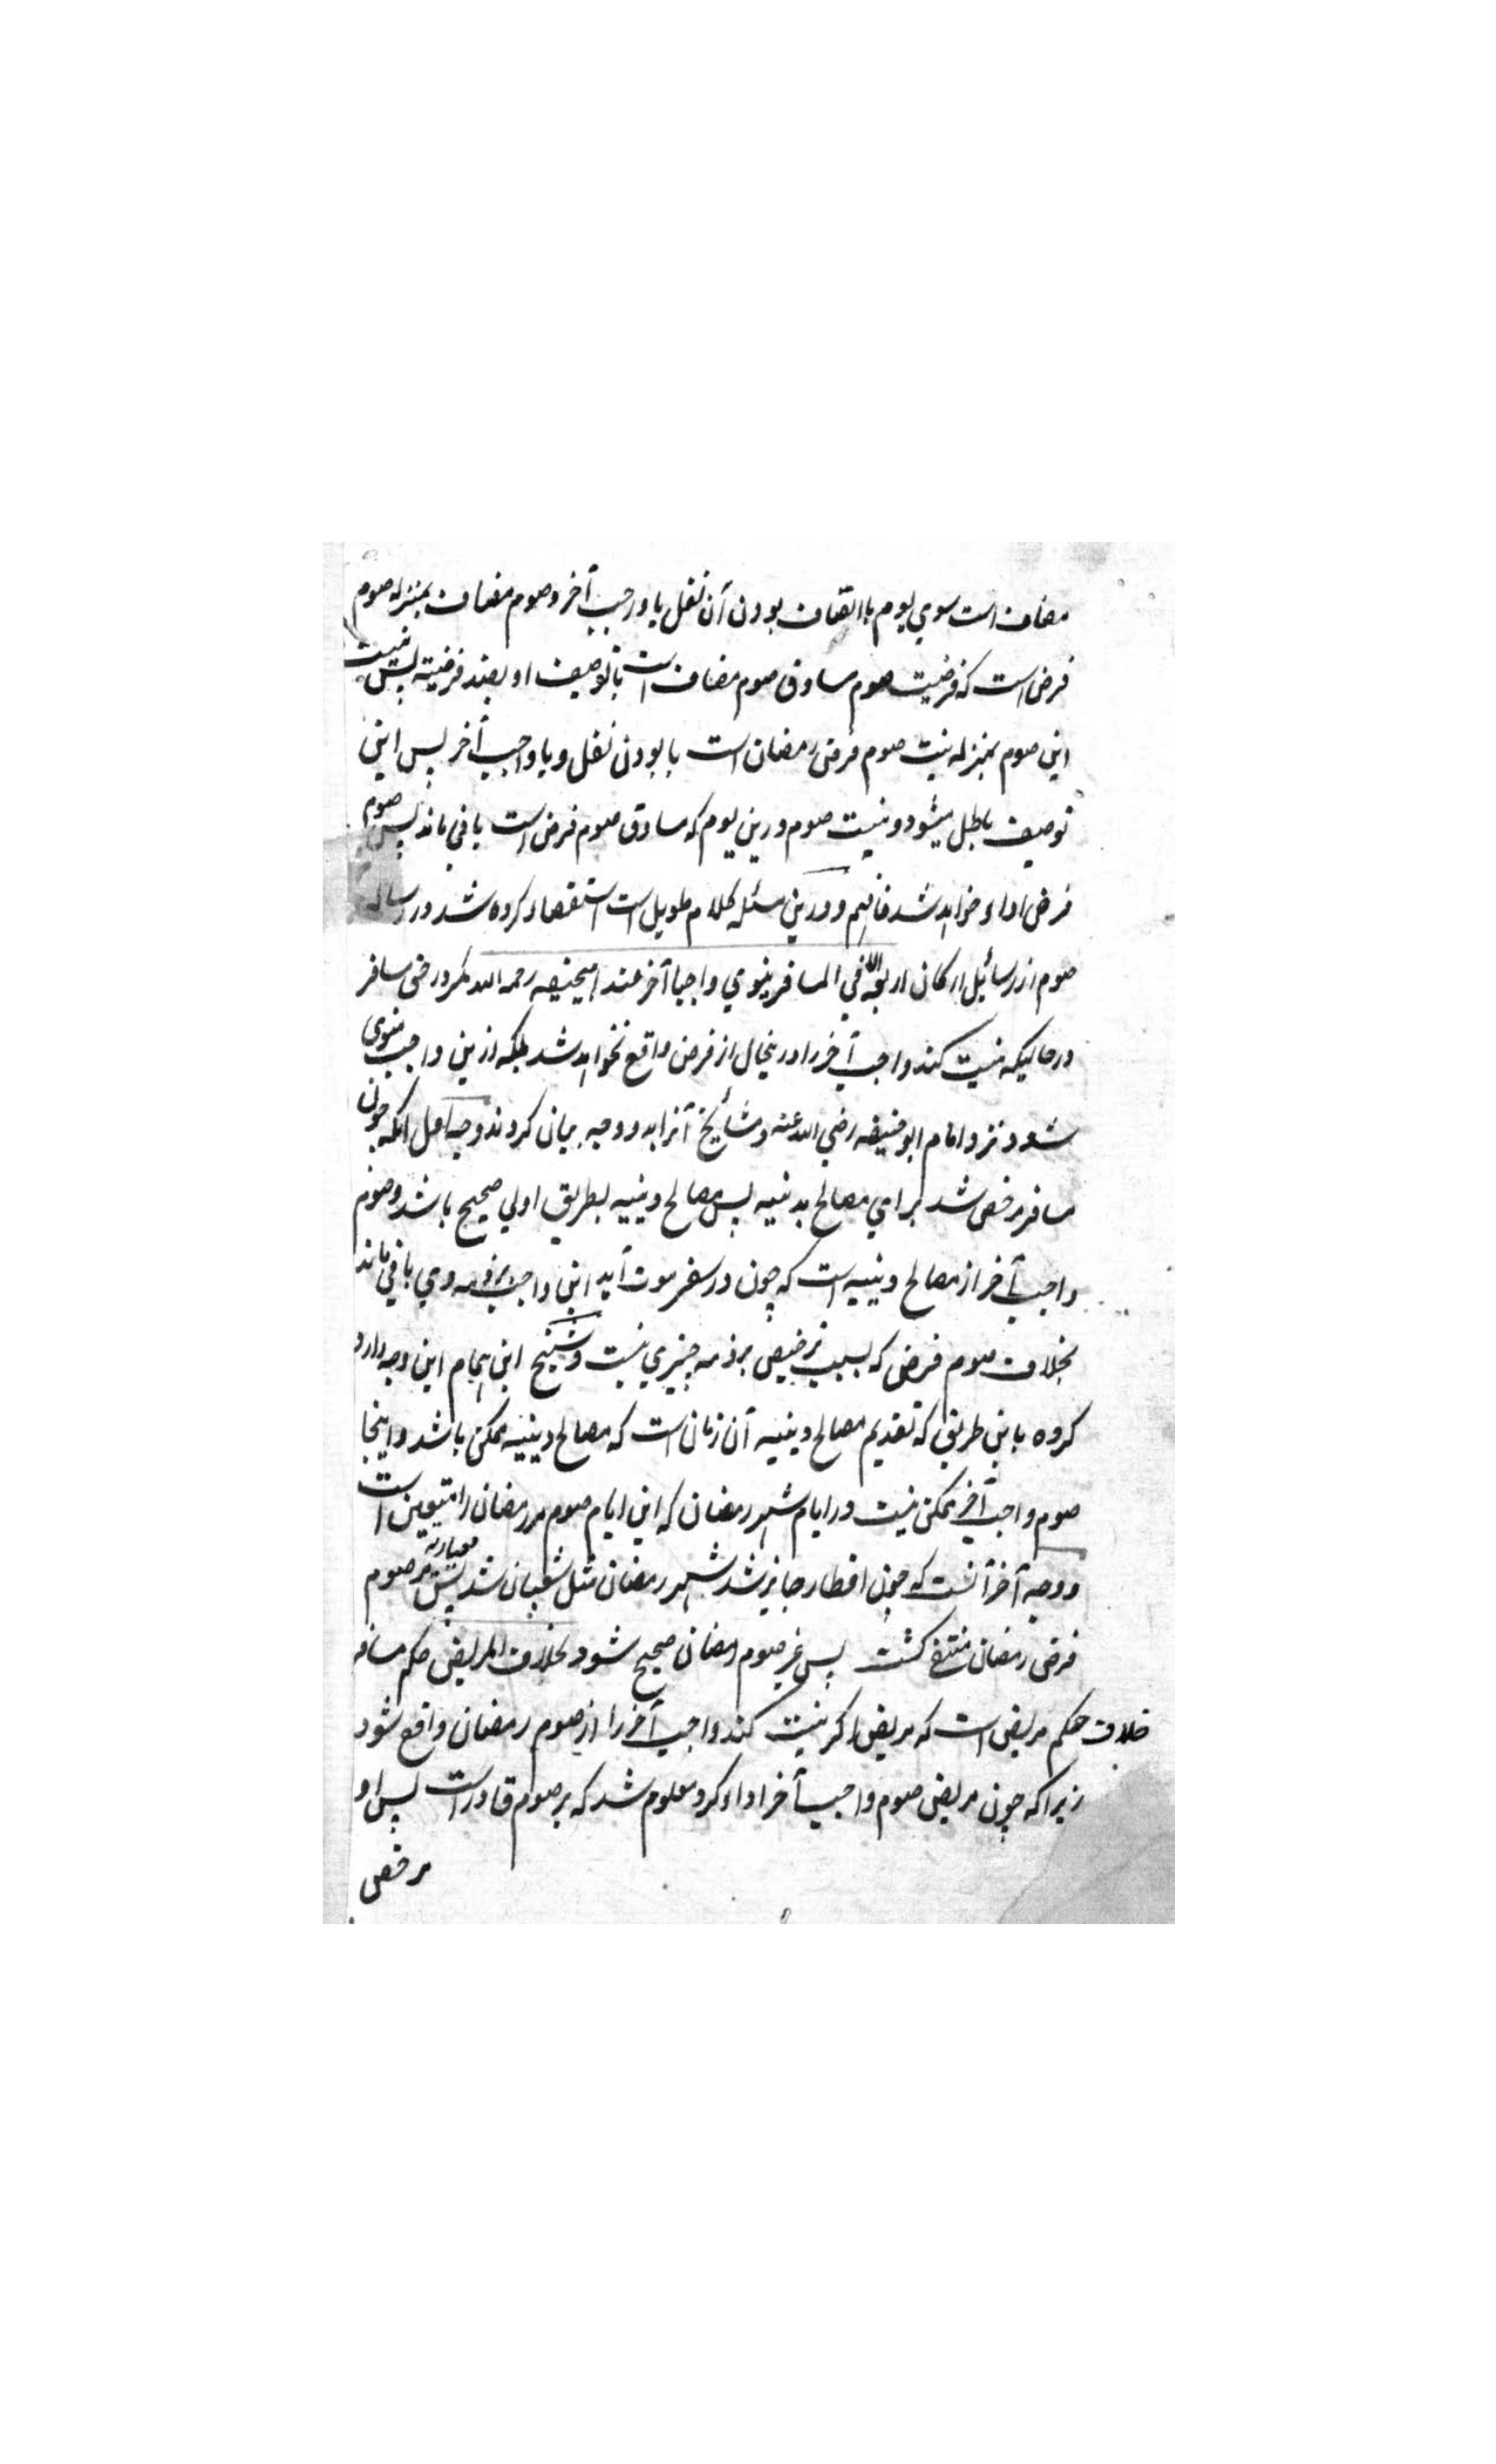 مضاف است سوي يوم با اتصاف بودن آن نفل يا واجب آخر و صوم مضاف بمنزله صوم
فرض است كه فرضيت صوم مساوق صوم مضاف است با توصيف او بضد فرضيته پس نيت
اين صوم بمنزله نيت صوم فرض رمضان است با بودن نفل و يا واجب آخر پس اين
توصيف باطل ميشود و نيت صوم درين يوم كه مساوق صوم فرض است باقي ماند پس صوم
فرض اداء خواهد شد فافهم و درين مسئله كلام طويل است استقصاء كرده شد در رساله
صوم از رسائل اركان اربعه الا في المسافر ينوي واجبا آخر عند ابيحنيفه رحمه الله مگر در حق مسافر
در حاليكه نيت كند واجب آخر را درينحال از فرض واقع نخواهد شد بلكه ازين واجب منوى
شود نزد امام ابو حنيفه رضي الله عنه و مشائخ آنرا به دو وجه بيان كردند وجه اول آنكه چون
مسافر مرخص شد براي مصالح بدنيه پس مصالح دينيه بطريق اولي صحيح باشد و صوم
واجب آخر از مصالح دينيه است كه چون در سفر موت آيد اين واجب بر ذمه وي باقي ماند
بخلاف صوم فرض كه بسبب ترخيص بر ذمه چيزي نيست و شيخ ابن همام اين وجه را رد
كرده باين طريق كه تقديم مصالح دينيه آن زمان است كه مصالح دينيه ممكن باشد و اينجا
صوم واجب آخر ممكن نيست در ايام شهر رمضان كه اين ايام صوم مر رمضان را متعين است
و وجه آخر آنست كه چون افطار جايز شد شهر رمضان مثل شعبان شد پس معياريه مر صوم
فرض رمضان منتفي گشت پس غير صوم رمضان صحيح شود بخلاف المريض حكم مسافر
خلاف حكم مريض است كه مريض اگر نيت كند واجب آخر را از صوم رمضان واقع شود
زيراكه چون مريض صوم واجب آخر اداء كرد معلوم شد كه بر صوم قادر است پس او
مرخص